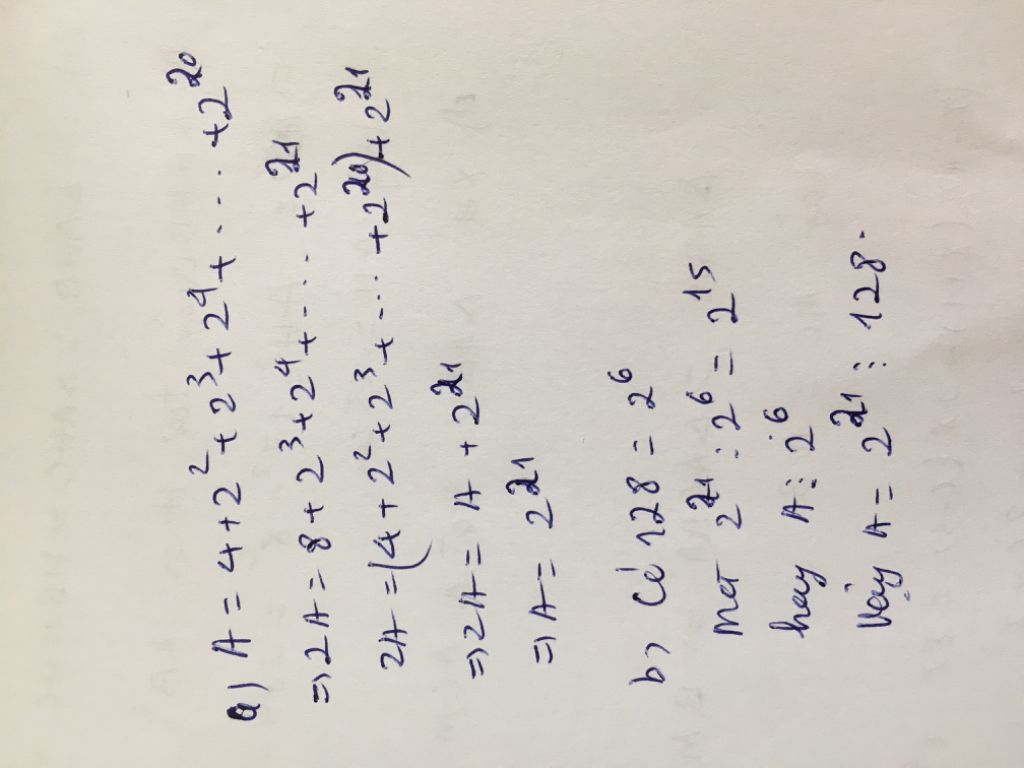 a) A = 4 + 2² + 2³ + 2⁴ + ... + 2²⁰
=> 2A = 8 + 2³ + 2⁴ + ... + 2²¹
2A = (4 + 2² + 2³ + ... + 2²⁰) + 2²¹
=> 2A = A + 2²¹
=> A = 2²¹
b) Có 128 = 2⁶
mà 2²¹ : 2⁶ = 2¹⁵
hay A ⋮ 2⁶
Vậy A = 2²¹ ⋮ 128.